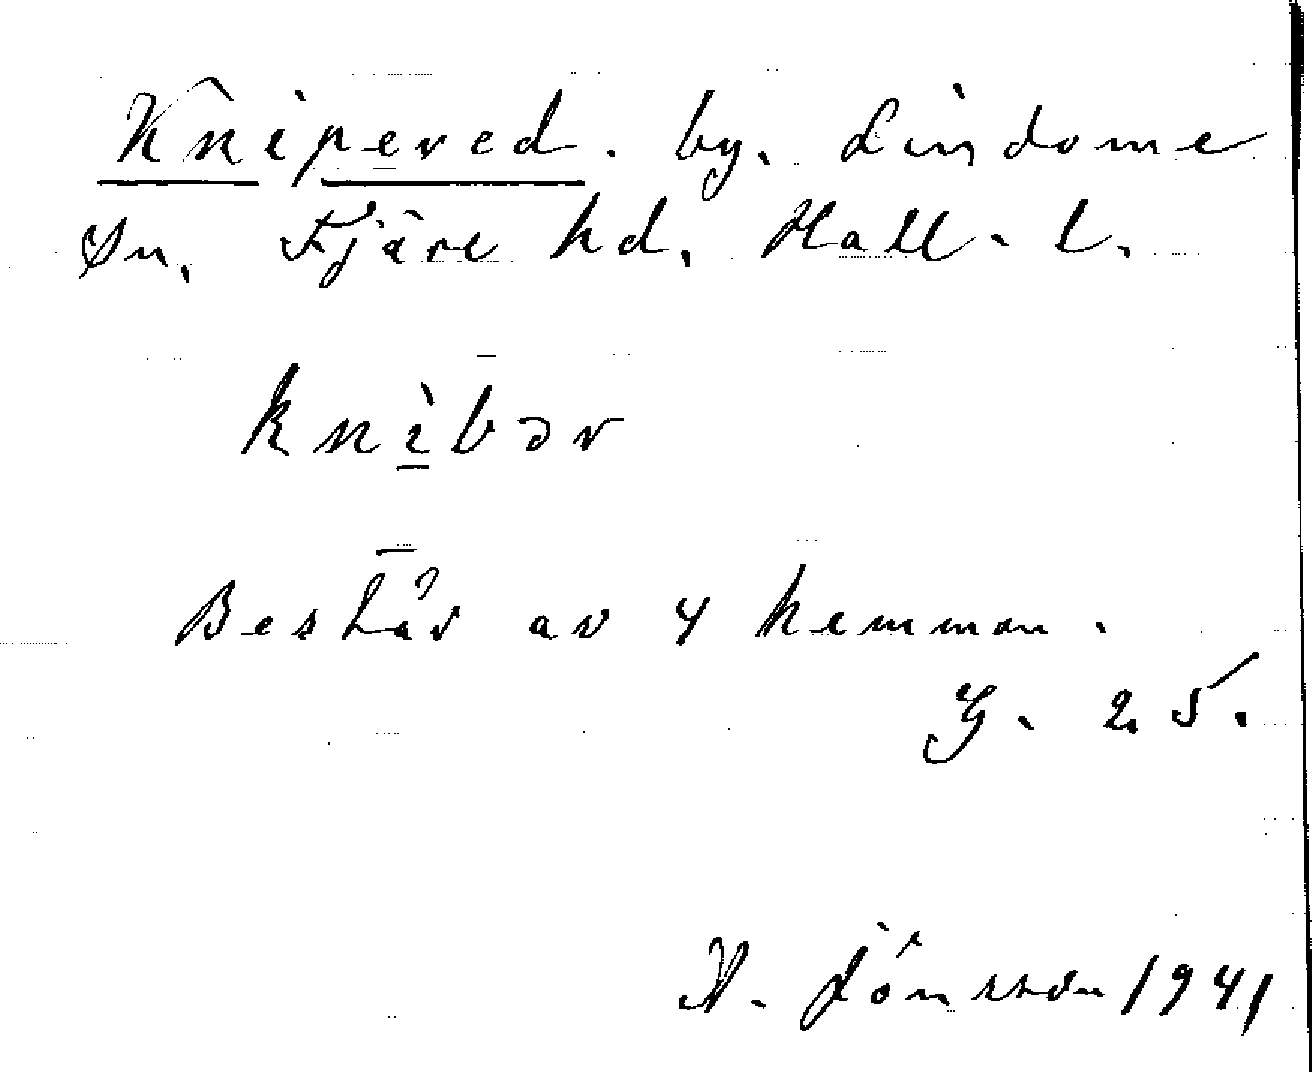 Knipered. by. Lindome
Sn. Fjäre hd. Hall. l.
knìbər
Består av 4 hemman.
G. 25.
H. Jönsson 1941